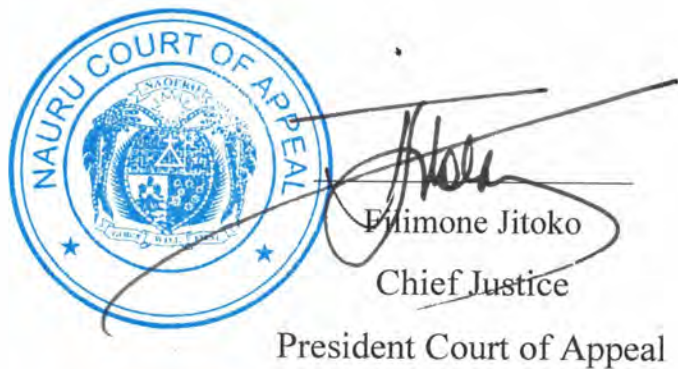 NAURU COURT OF APPEAL
NAOERO
GOD'S WILL FIRST
Filimone Jitoko
Chief Justice
President Court of Appeal